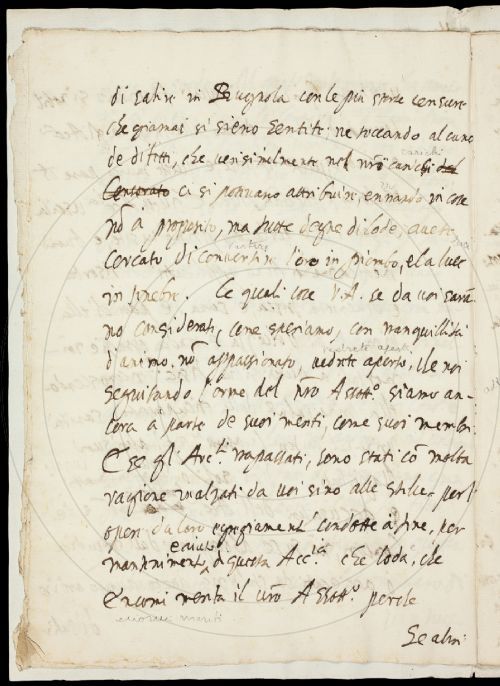 di salire in Bugnola con le più storte censure
che giamai si sieno sentite: ne toccando alcuno
de difetti, che verisimilmente nel nrō carichi del
Censorato ci si potevano attribuire, entrando in cose
nō a proposito, ma tutte degne di lode, avete
cercato di convertire l'oro in piombo, e la luce
in tenebre. Le quali cose V.A. se da voi saran-
no considerati, come speriamo, con tranquillità
d'animo, nō appassionato, vedrete aperto, che noi
seguitando l'orme del nrō Assott.º siamo an-
cora a parte de suoi meriti, come suoi membri
E se gl'Arc.ⁱ trapassati, sono stati cō molta
ragione inalzati da voi sino alle stelle, per l'
opere da loro egregiament' condotte à fine, per
manteniment' di questa Acc.ª che loda, che
encomi merita il vrō Assott.º perche
carichi
vedrete aperto
encomi meriti
Se altri